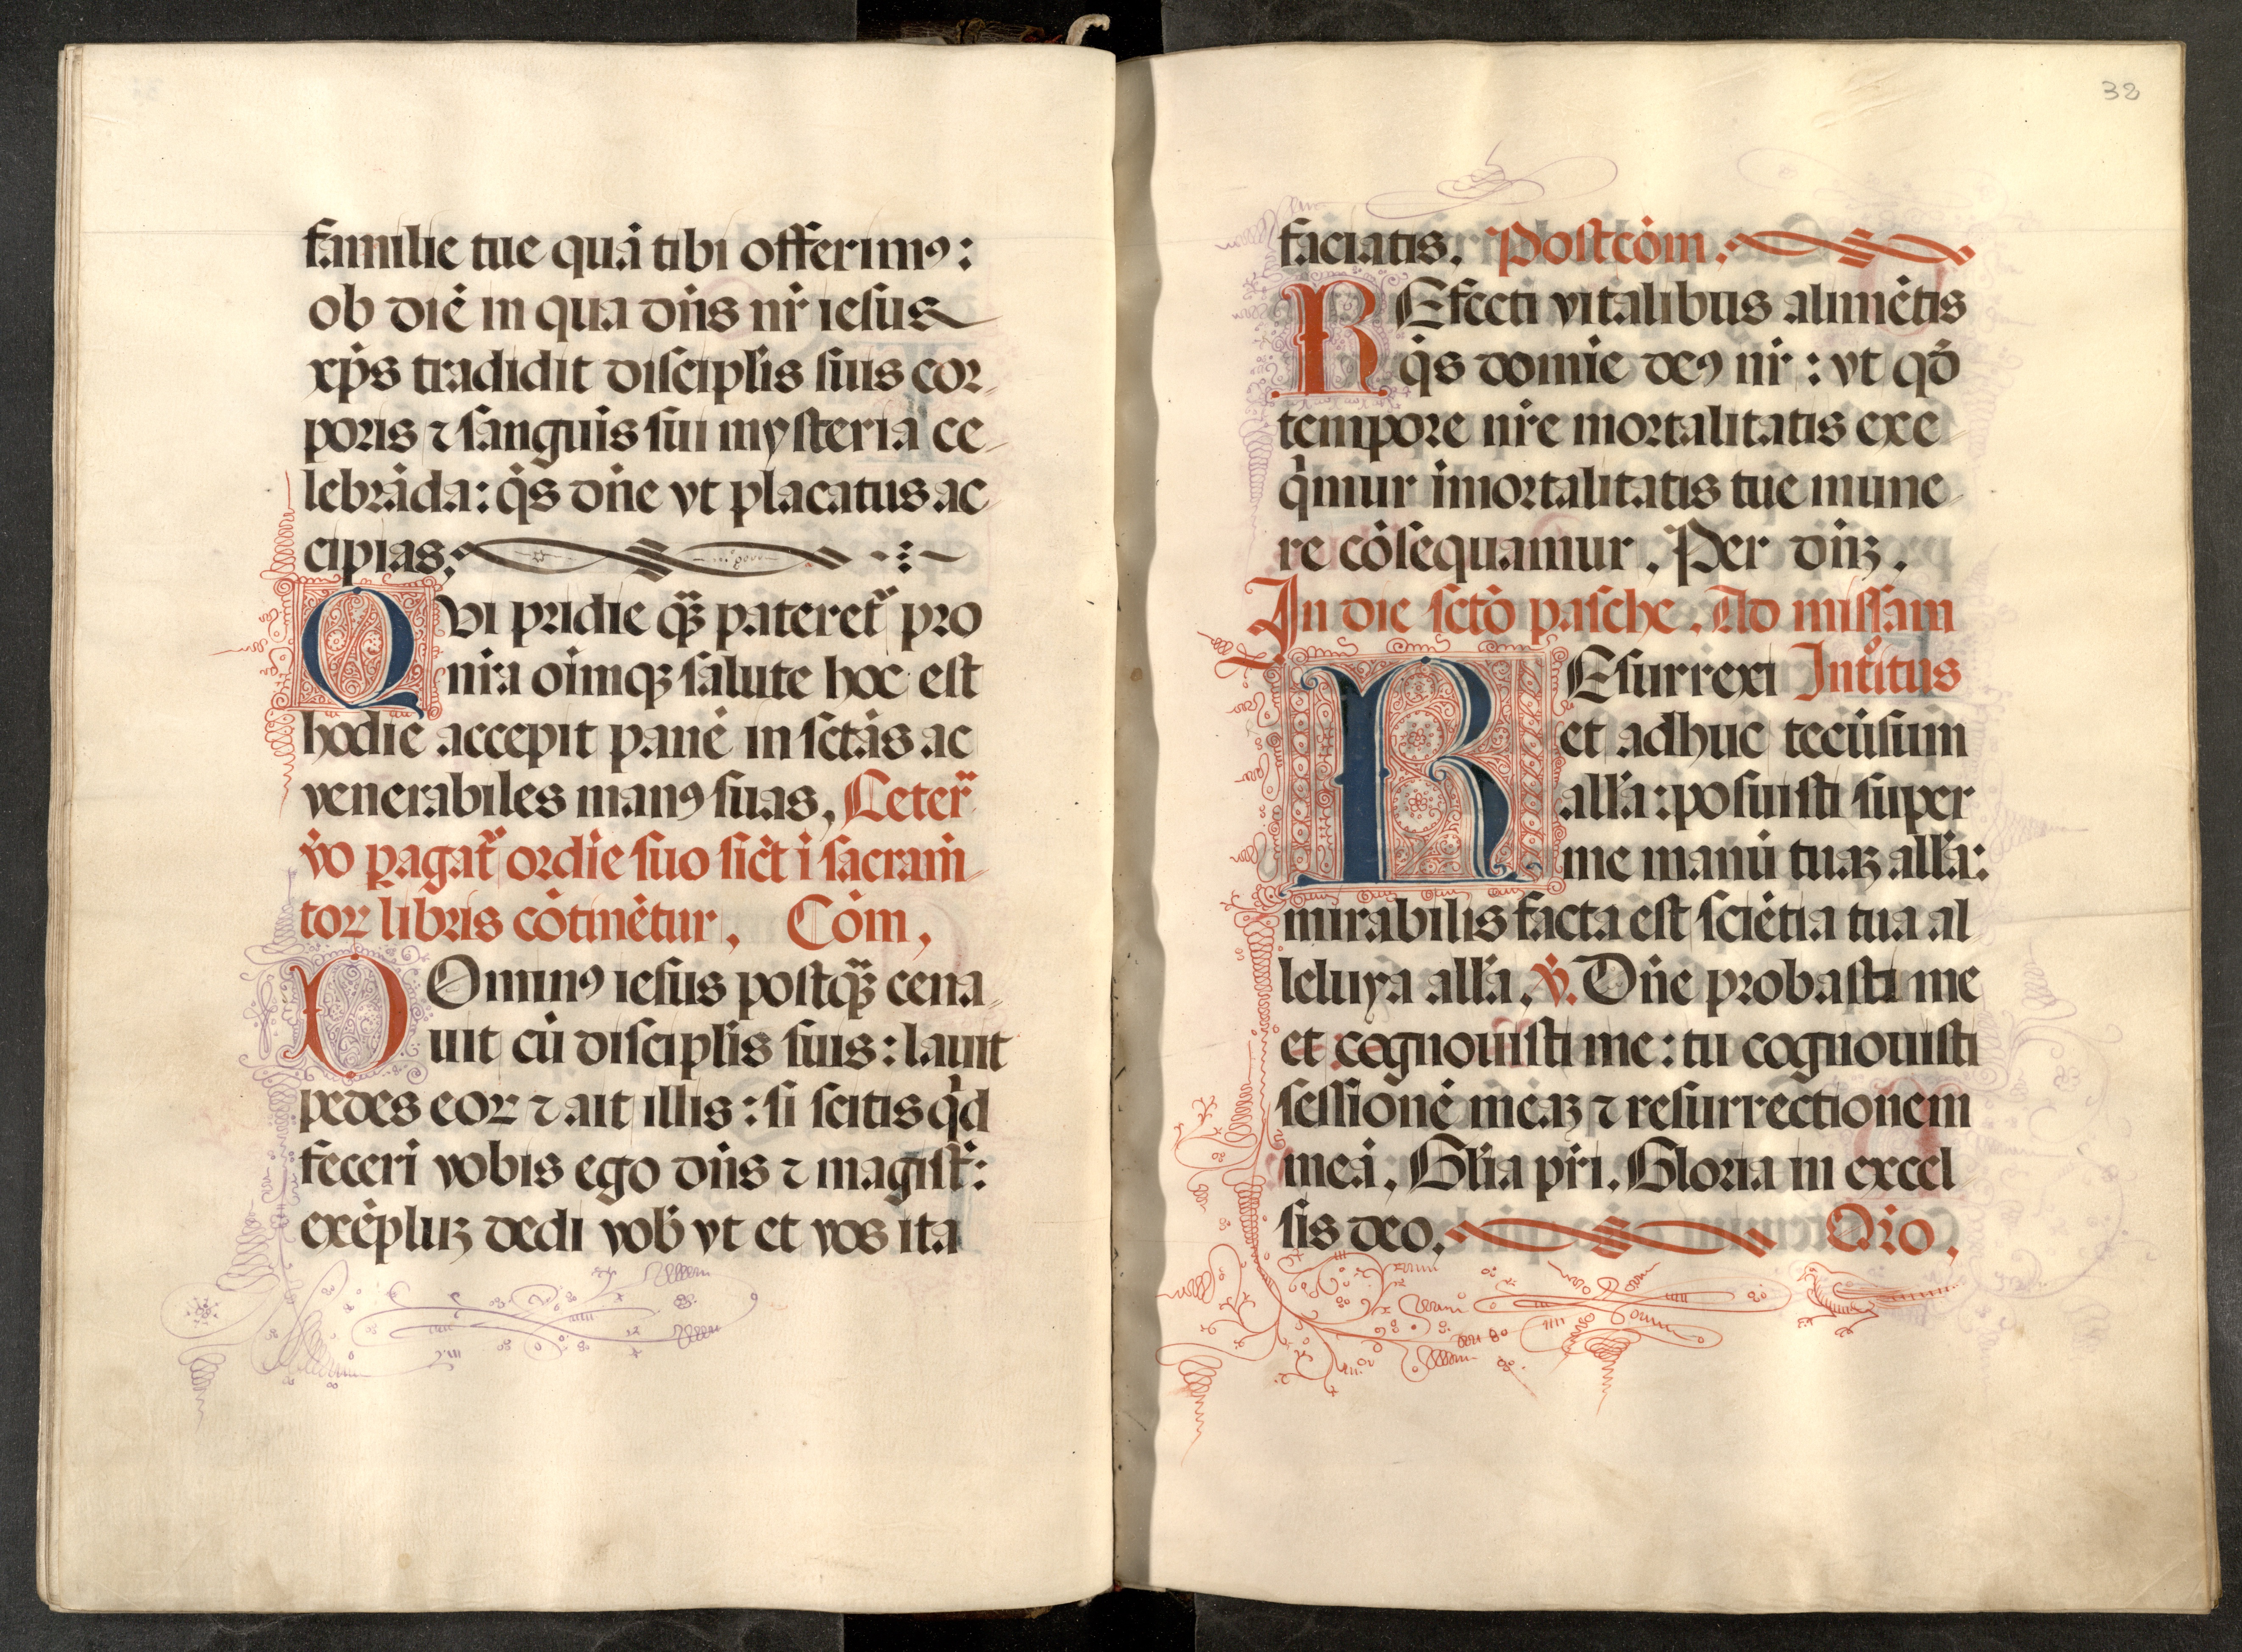 familie tue quā tibi offerimꝰ:
ob diē in qua dn̄s nr̄ iesus
xp̄s tradidit discipl̄is suis cor
poris ⁊ sanguis sui mysteria ce
lebrāda: q̄s dn̄e vt placatus ac
cipias.
QVi pridie qꝫ̄ pateret᷑ pro
nr̄a oīmqꝫ salute hoc est
hodie accepit panē in sctās ac
venerabiles manꝰ suas, Ceter᷑
v̄o ꝑagat᷑ ordīe suo sic̄t ī sacram̄
toꝝ libris cōtinētur, Cōm,
DOminꝰ iesus postqꝫ̄ cena
uit cū discipl̄is suis: lauit
pedes eoꝝ ⁊ ait illis: si scitis qͥd
fecerī vobis ego dn̄s ⁊ magist᷑:
exēpluꝫ dedi vob̄ vt et vos ita
32
faciatis, Postcōm,
REfecti vitalibus alimētis
q̄s domīe deꝰ nr̄: vt qđ
tempore nr̄e mortalitatis exe
qͥmur īmortalitatis tue mune
re cōsequamur, Per dn̄ꝫ,
In die sctō pasche, Ad missam
REsurrexi Int͛itus
et adhuc tecū sum
all̄a: posuisti super
me manū tuaꝫ all̄a:
mirabilis facta est sciētia tua al
leluya all̄a, ℣. Dn̄e probasti me
et cognouisti me: tu cognouisti
sessionē meaꝫ ⁊ resurrectionem
meā, Gl̄ia pr̄i, Gloria in excel
sis deo, Or̄o,